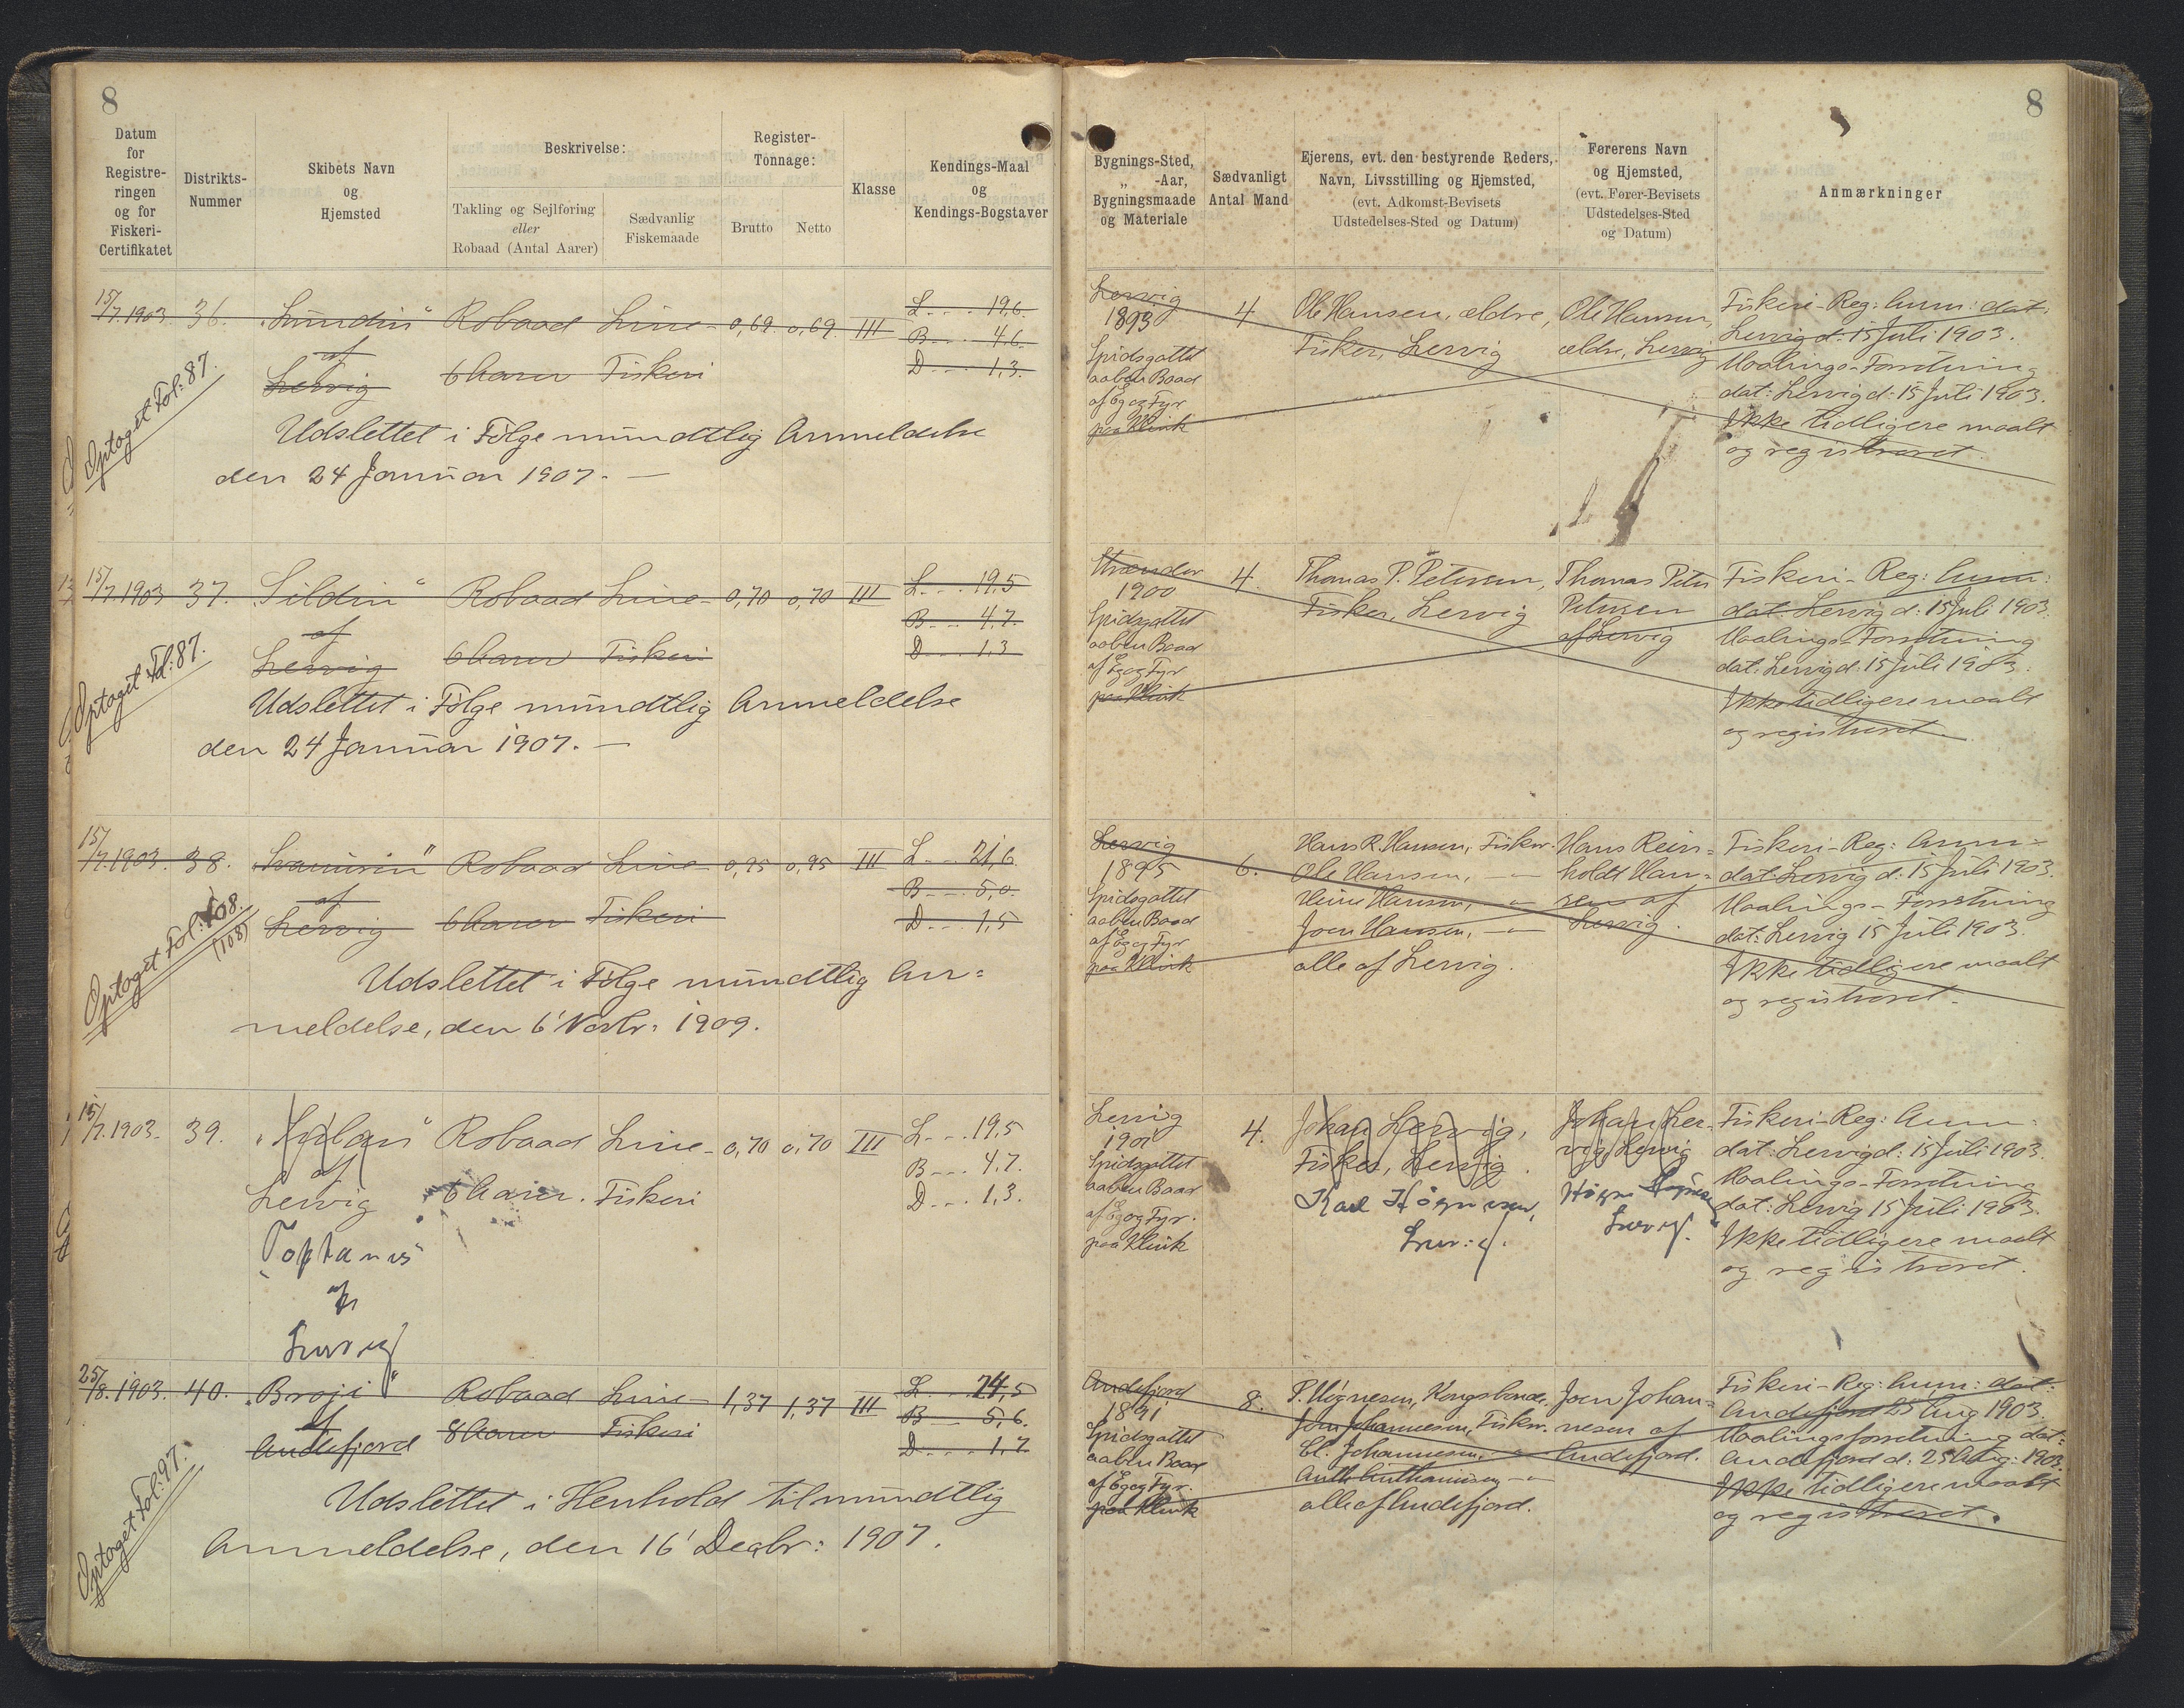 8
Datum
for
Registre-
ringen
og for
Fiskeri-
Certifikatet
Distrikts-
Nummer
Skibets Navn
og
Hjemsted
Beskrivelse:
Takling og Sejlføring
eller
Robaad (Antal Aarer)
Sædvanlig
Fiskemaade
Register-
Tonnage:
Brutto
Netto
Klasse
Kendings-Maal
og
Kendings-Bogstaver
15/7.1903. 36. Robaad Line- 0,69 0,69 III L....19,6.
B....4,6.
af
Lervig 6 Aarer Fiskeri D....1,3.
Optaget Fol: 87.
Udslettet i Følge mündtlig Anmeldelse
den 24 Januar 1907. —
15/7.1903 37. „Sildin“ Robaad Line- 0,70 0,70 III L....19,5
B....4,7.
af
Lervig 6 Aarer Fiskeri D....1,3
Optaget Fol: 87.
Udslettet i Følge mündtlig Anmeldelse
den 24 Januar 1907. —
15/7.1903. 38. Robaad Line- 0,95 0,95 III L....21,6
B....5,0.
af
Lervig 6 Aarer Fiskeri D....1,5
Optaget Fol: 108.
(108)
Udslettet i Følge mündtlig An=
meldelse, den 6' Novbr. 1909.
15/7.1903. 39. Robaad Line- 0,70 0,70 III L...19,5
B...4,7.
af
Lervig 6 Aarer. Fiskeri D...1,3.
af
Lervig
25/8.1903. 40. „Broji“ Robaad Line- 1,37 1,37 III L....24,5
B...5,6.
af
Andefjord 8 Aarer Fiskeri D....1,7
Optaget Fol: 97.
Udslettet i Henhold til mündtlig
Anmeldelse, den 16' Decbr: 1907.
8
Bygnings-Sted,
„ -Aar,
Bygningsmaade
og Materiale
Sædvanligt
Antal Mand
Ejerens, evt. den bestyrende Reders,
Navn, Livsstilling og Hjemsted,
(evt. Adkomst-Bevisets
Udstedelses-Sted og Datum)
Førerens Navn
og Hjemsted,
(evt. Fører-Bevisets
Udstedelses-Sted
og Datum)
Anmærkninger
Lervig
1893
Spidsgattet
aaben Baad
af Eg og Fyr
paa Klink
4
Ole Hansen, ældre,
Fisker, Lervig
Ole Hansen,
ældre, Lervig
Fiskeri-Reg: Anm: dat:
Lervig d. 15 Juli 1903.
Maalings-Forretning
dat: Lervig d: 15 Juli 1903.
Ikke tidligere maalt
og registreret.
1900
Spidsgattet
aaben Baad
af Eg og Fyr
paa Klink
4.
Thomas P. Petersen,
Fisker, Lervig
Thomas Peter
Petersen
af Lervig
Fiskeri-Reg: Anm:
dat. Lervig d. 15 Juli 1903.
Maalings-Forretning
dat: Lervig d: 15 Juli 1903.
Ikke tidligere maalt
og registreret.
Lervig
1895
Spidsgattet
aaben Baad
af Eg og Fyr
paa Klink
6.
Hans R. Hansen, Fisker.
Ole Hansen, — „ —
Heine Hansen, — „ —
Joen Hansen, — „ —
alle af Lervig.
Hans Rein=
holdt Han=
sen af
Lervig.
Fiskeri-Reg: Anm:
dat: Lervig d. 15 Juli 1903.
Maalings-Forretning
dat: Lervig 15 Juli 1903.
Ikke tidligere maalt
og registreret.
Lervig
1901
Spidsgattet
aaben Baad
af Eg og Fyr.
paa Klink
4.
Johan Lervig,
Fisker, Lervig.
Karl Høgnesen,
Lervig.
Johan Ler-
vig, Lervig
Lervig.
Fiskeri-Reg: Anm:
dat: Lervig d: 15 Juli 1903.
Maalings-Forretning
dat: Lervig 15 Juli 1903.
Ikke tidligere maalt
og registreret.
Andefjord
1891
Spidsgattet
aaben Baad
af Eg og Fyr.
paa Klink
8.
P. Høgnesen, Kongsbonde,
Joen Johannesen, Fisker.
Cl. Johannesen, — „ —
— „ —
alle af Andefjord.
Joen Johan=
nesen af
Andefjord.
Fiskeri-Reg: Anm: dat:
Andefjord 25 Aug 1903.
Maalingsforretning dat:
Andefjord d. 25 Aug: 1903.
Ikke tidligere maalt
og registreret.